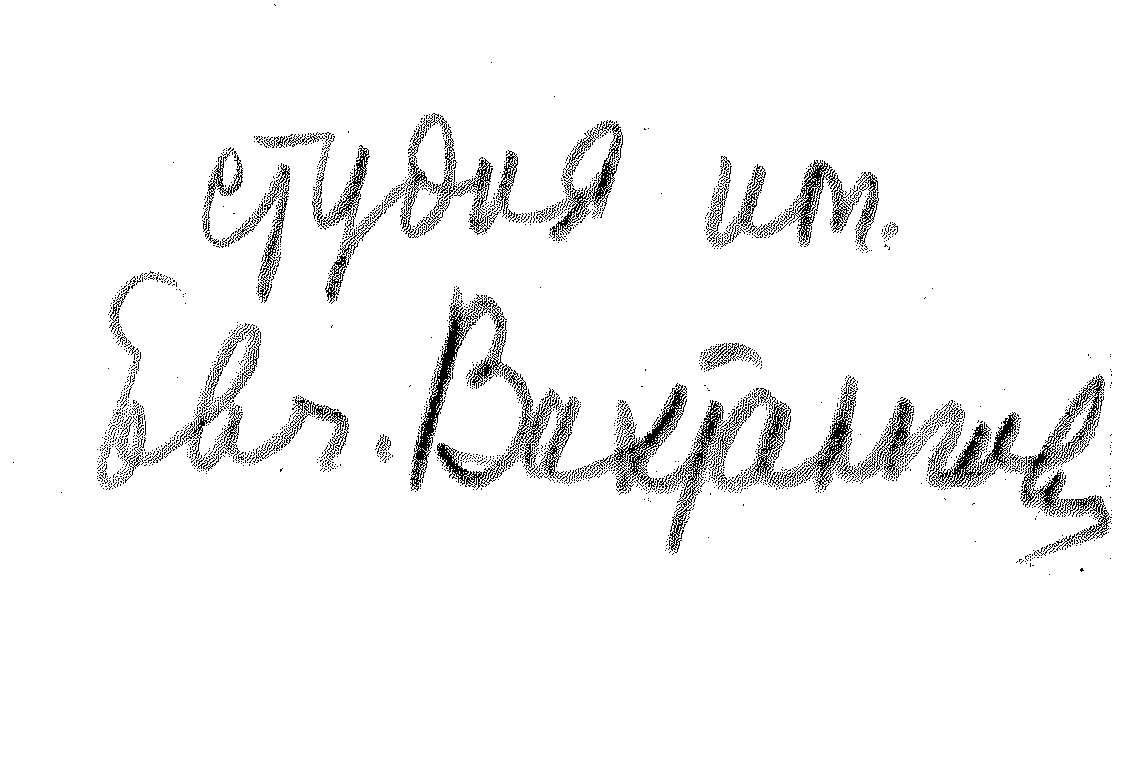 студия им.
Евг. Вахтангова